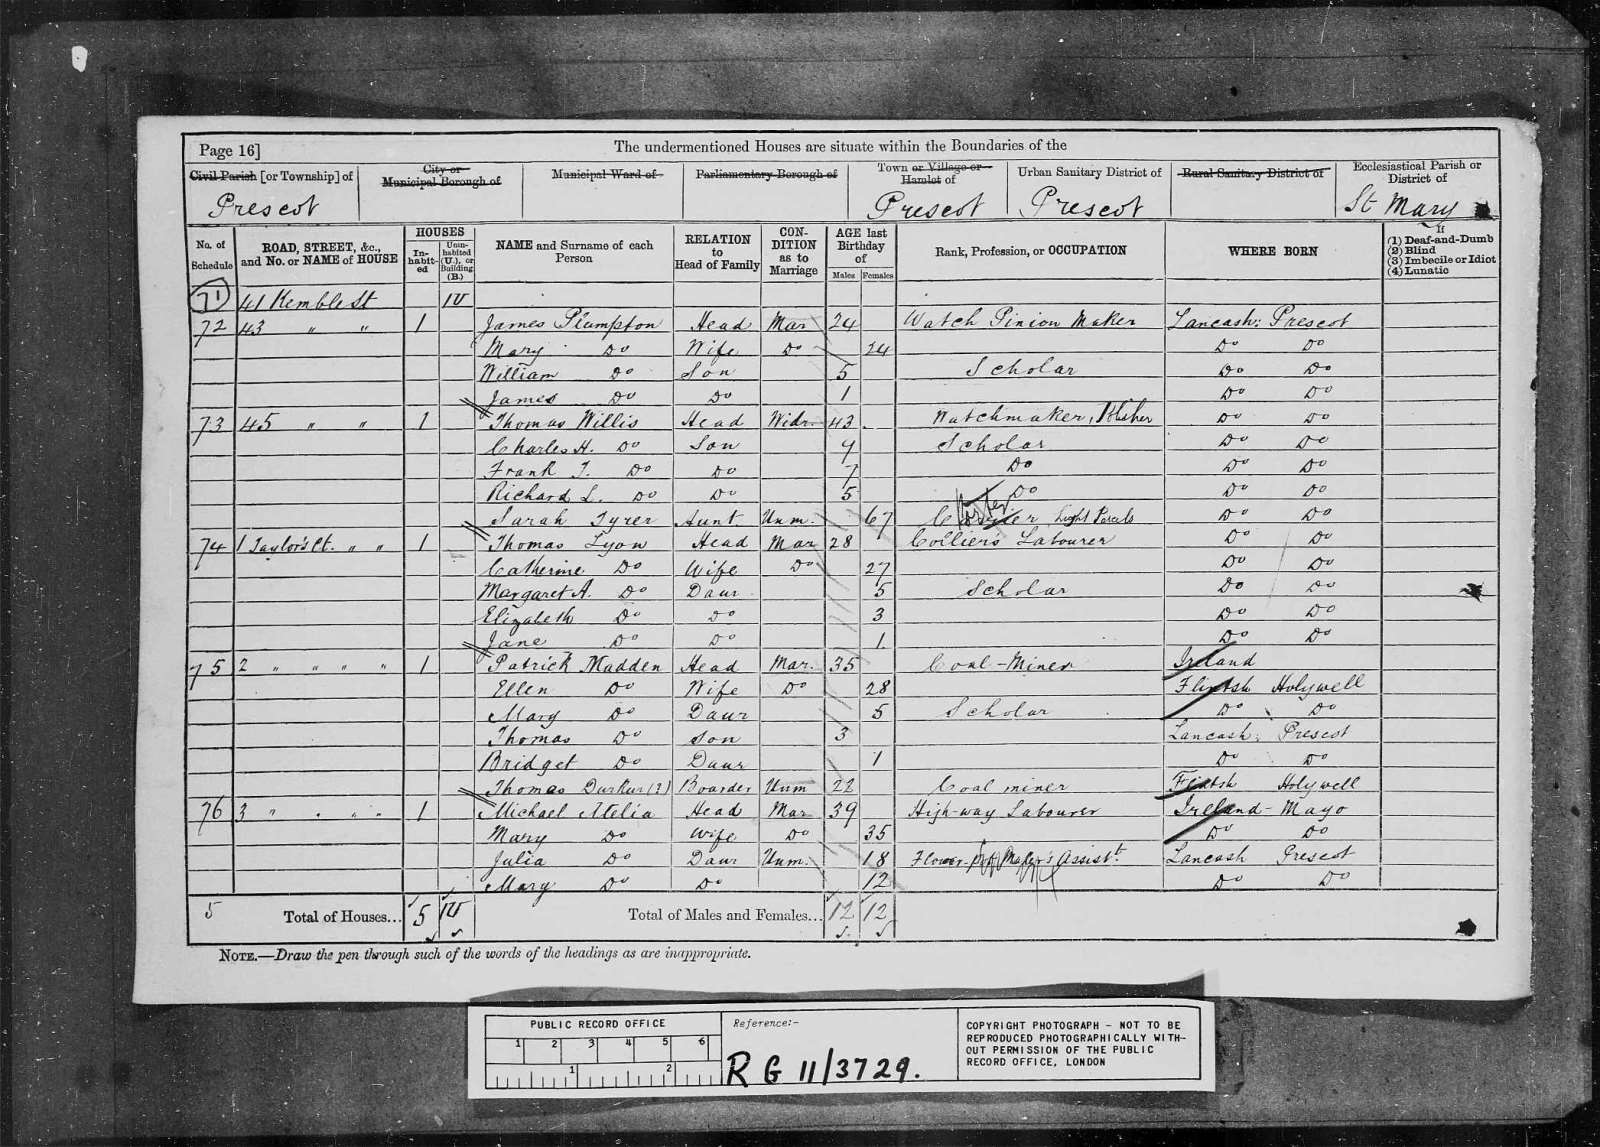 Page 16] The undermentioned Houses are situate within the Boundaries of the
Civil Parish [or Township] of City or Municipal Borough of Municipal Ward of Parliamentary Borough of Town or Village or Hamlet of Urban Sanitary District of Rural Sanitary District of Ecclesiastical Parish or District of
Prescot Prescot Prescot St Mary
No. of Schedule ROAD, STREET, &c., and No. or NAME of HOUSE HOUSES Inhabited Uninhabited (U.), or Building (B.) NAME and Surname of each Person RELATION to Head of Family CONDITION as to Marriage AGE last Birthday of Males Females Rank, Profession, or OCCUPATION WHERE BORN If (1) Deaf-and-Dumb (2) Blind (3) Imbecile or Idiot (4) Lunatic
71 41 Kemble St 1U
72 43 " " 1 James Plumpton Head Mar 24 Watch Pinion Maker Lancash: Prescot
Mary Do Wife Do 24 Do Do
William Do Son 5 Scholar Do Do
James Do Do 1 Do Do
73 45 " " 1 Thomas Willis Head Widr. 43 Watchmaker, Do Do
Charles H. Do Son 9 Scholar Do Do
Frank T. Do Do 7 Do Do Do
Richard L. Do Do 5 Do Do Do
Sarah Tyrer Aunt Unm. 67 Porter Light Parcels Do Do
74 1 Taylor's Ct. " " 1 Thomas Lyon Head Mar 28 Collier's Labourer Do Do
Catherine Do Wife Do 27 Do Do
Margaret A. Do Daur 5 Scholar Do Do
Elizabeth Do Do 3 Do Do
Jane Do Do 1 Do Do
75 2 " " " " 1 Patrick Madden Head Mar. 35 Coal-Miner Ireland
Ellen Do Wife Do 28 Flintsh Holywell
Mary Do Daur 5 Scholar Do Do
Thomas Do Son 3 Lancash: Prescot
Bridget Do Daur 1 Do Do
Thomas Durkin (?) Boarder Unm 22 Coal miner Flintsh Holywell
76 3 " " " " 1 Michael Melia Head Mar 39 High-way Labourer Ireland - Mayo
Mary Do Wife Do 35 Do Do
Julia Do Daur Unm. 18 Flower Pot Maker's Assistt. Lancash Prescot
Mary Do Do 12 Do Do
5 Total of Houses... 5 1U Total of Males and Females... 12 12
NOTE.—Draw the pen through such of the words of the headings as are inappropriate.
PUBLIC RECORD OFFICE
1 2 3 4 5 6
1 2
Reference:-
RG 11/3729.
COPYRIGHT PHOTOGRAPH - NOT TO BE
REPRODUCED PHOTOGRAPHICALLY WITH-
OUT PERMISSION OF THE PUBLIC
RECORD OFFICE, LONDON